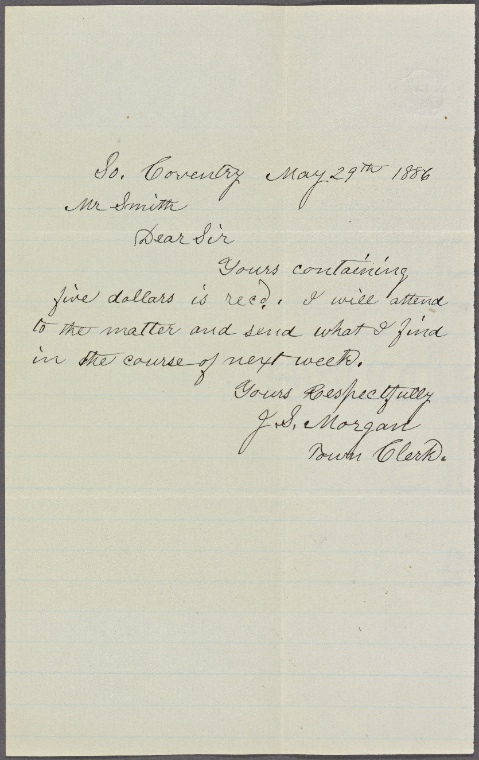 So. Coventry May 29th 1886
Mr Smith
Dear Sir
Yours containing
five dollars is recd. I will attend
to the matter and send what I find
in the course of next week.
Yours Respectfully
J. S. Morgan
Town Clerk.